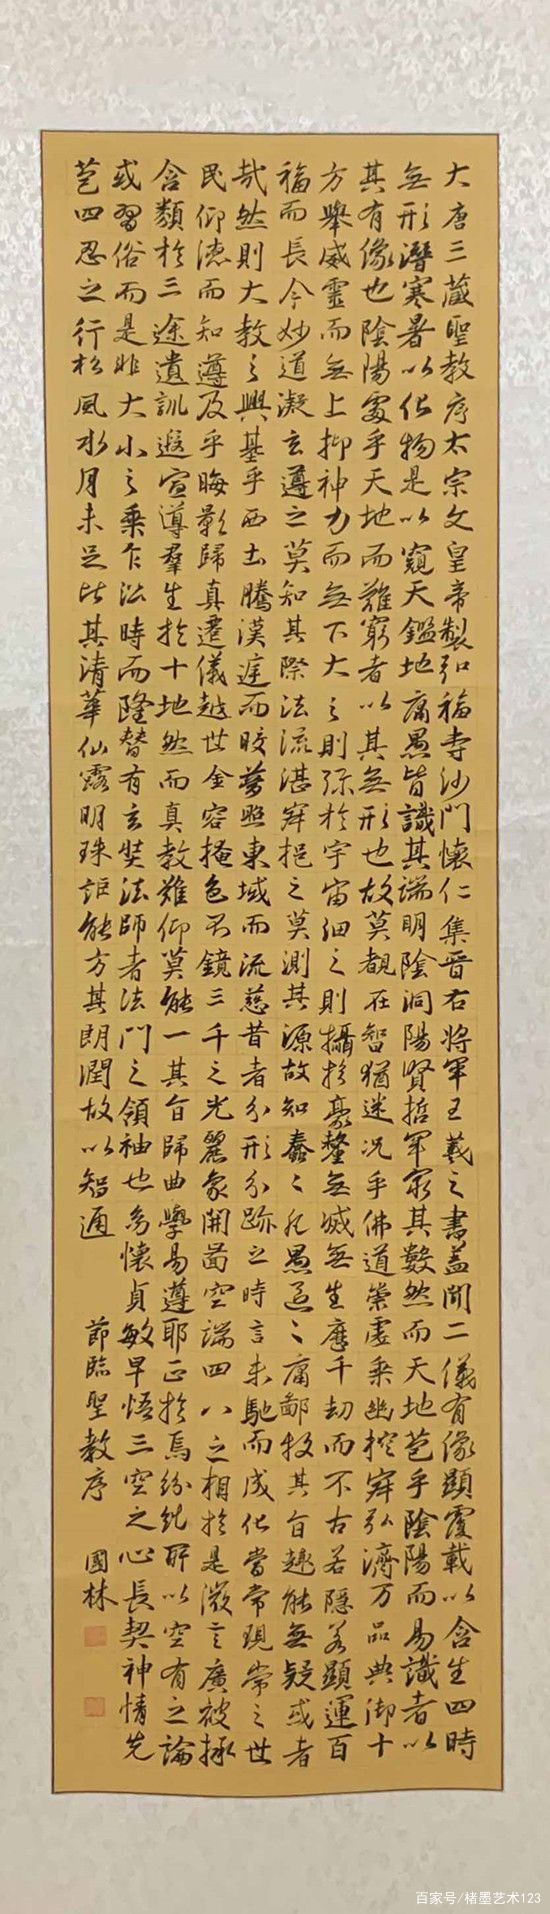 大唐三藏聖教序太宗文皇帝製弘福寺沙門懷仁集晉右將軍王羲之書蓋聞二儀有像顯覆載以含生四時
無形潛寒暑以化物是以窺天鑑地庸愚皆識其端明陰洞陽賢哲罕窮其數然而天地苞乎陰陽而易識者以
其有像也陰陽處乎天地而難窮者以其無形也故莫覩在智猶迷況乎佛道崇虛乘幽控寂弘濟万品典御十
方舉威靈而無上抑神力而無下大之則彌於宇宙細之則攝於豪釐無滅無生歷千劫而不古若隱若顯運百
福而長今妙道凝玄遵之莫知其際法流湛寂挹之莫測其源故知蠢〻凡愚區〻庸鄙投其旨趣能無疑或者
哉然則大教之興基乎西土騰漢庭而皎夢照東域而流慈昔者分形分跡之時言未馳而成化當常現常之世
民仰德而知遵及乎晦影歸真遷儀越世金容掩色不鏡三千之光麗象開圖空端四八之相於是微言廣被拯
含類於三途遺訓遐宣導羣生於十地然而真教難仰莫能一其旨歸曲學易遵耶正於焉紛糺所以空有之論
或習俗而是非大小之乘乍沿時而隆替有玄奘法師者法門之領袖也幼懷貞敏早悟三空之心長契神情先
苞四忍之行松風水月未足比其清華仙露明珠詎能方其朗潤故以智通 節臨聖教序 國林
百家号/楮墨艺术123